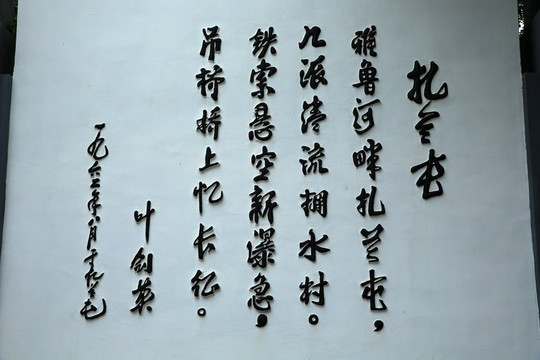 扎兰屯
雅鲁河畔扎兰屯，
几派清流拥水村。
铁索悬空新瀑急，
吊桥桥上忆长征。
叶剑英
一九六三年八月于扎兰屯